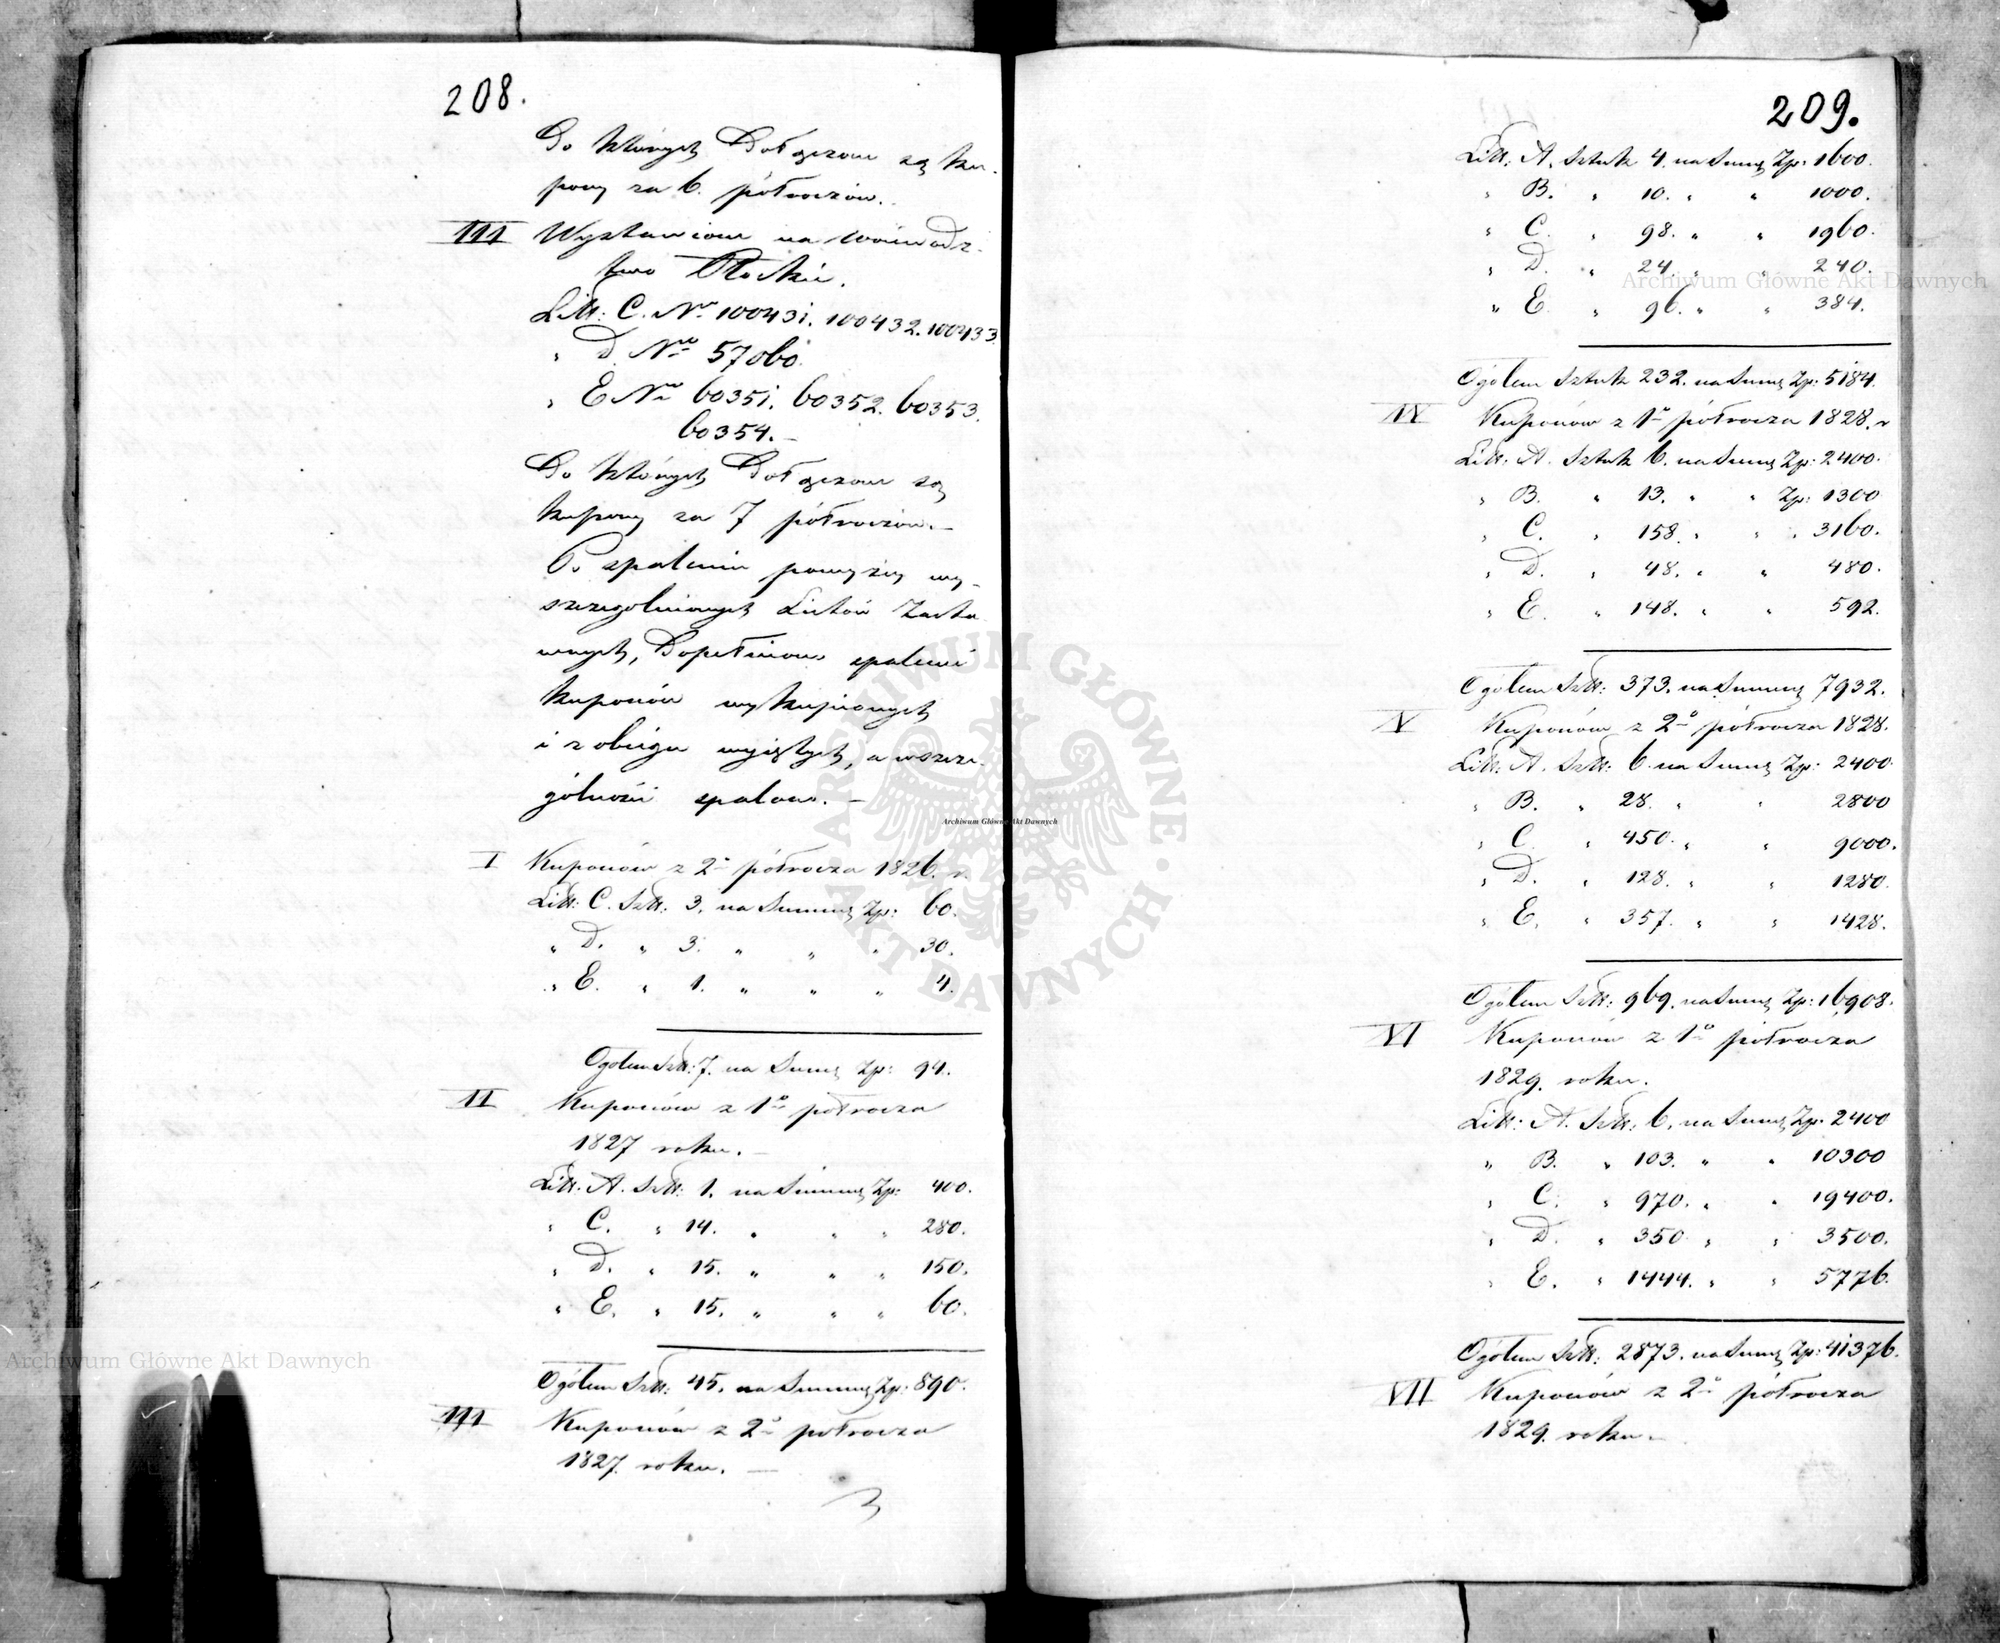 208.
Do których Dołączone są ku-
pony za 6. półroczów.
III Wystawione na Woiewodz-
two Płockie.
Litt: C. Nro 100431. 100432. 100433.
" D. Nro 57060.
" E Nro 60351. 60352. 60353.
60354. –
Do których Dołączone są
kupony za 7 półroczów. –
Po spaleniu powyżey wy-
szczegolnionych Listów Zasta-
wnych, Dopełniono spalenie
kuponów wykupionych
i z obiegu wyiętych, a w szcze-
gólności spalono. –
I Kuponów z 2o półrocza 1826. r.
Litt: C. Sztt: 3. na Summę Zp: 60.
" D. " 3. " " " 30.
" E. " 1. " " " 4.
Ogółem Sztt: 7. na Summę Zp: 94.
II Kuponów z 1o półrocza
1827 roku. –
Litt: A. Sztt: 1. na Summę Zp: 400.
" C. " 14. " " " 280.
" D. " 15. " " " 150.
" E. " 15. " " " 60.
Ogółem Sztt: 45. na Summę Zp: 890.
III Kuponów z 2o półrocza
1827 roku. –
209.
Litt: A. Sztuk 4. na Summę Zp: 1600.
" B. " 10. " " 1000.
" C. " 98. " " 1960.
" D. " 24. " " 240.
" E " 96. " " 384.
Ogółem Sztuk 232. na Summę Zp: 5184.
IV Kuponów z 1o półrocza 1828. r
Litt: A. Sztuk 6. na Summę Zp: 2400.
" B. " 13. " " Zp: 1300
" C. " 158. " " " 3160.
" D. " 48. " " 480.
" E. " 148. " " 592.
Ogółem Sztt: 373. na Summę 7932.
V Kuponów z 2o półrocza 1828.
Litt: A. Sztt: 6. na Summę Zp: 2400.
" B. " 28. " " 2800
" C. " 450. " " 9000.
" D. " 128. " " 1280.
" E. " 357. " " 1428.
Ogółem Sztt: 969. na Summę Zp: 16908.
VI Kuponów z 1o półrocza
1829. roku.
Litt: A. Sztt: 6. na Summę Zp: 2400
" B. " 103. " " 10300
" C. " 970. " " 19400.
" D. " 350. " " 3500.
" E. " 1444. " " 5776.
Ogółem Sztt: 2873. na Summę Zp: 41376.
VII Kuponów z 2o półrocza
1829. roku. –
Archiwum Główne Akt Dawnych
Archiwum Główne Akt Dawnych
Archiwum Główne Akt Dawnych
ARCHIWUM GŁÓWNE · AKT DAWNYCH ·